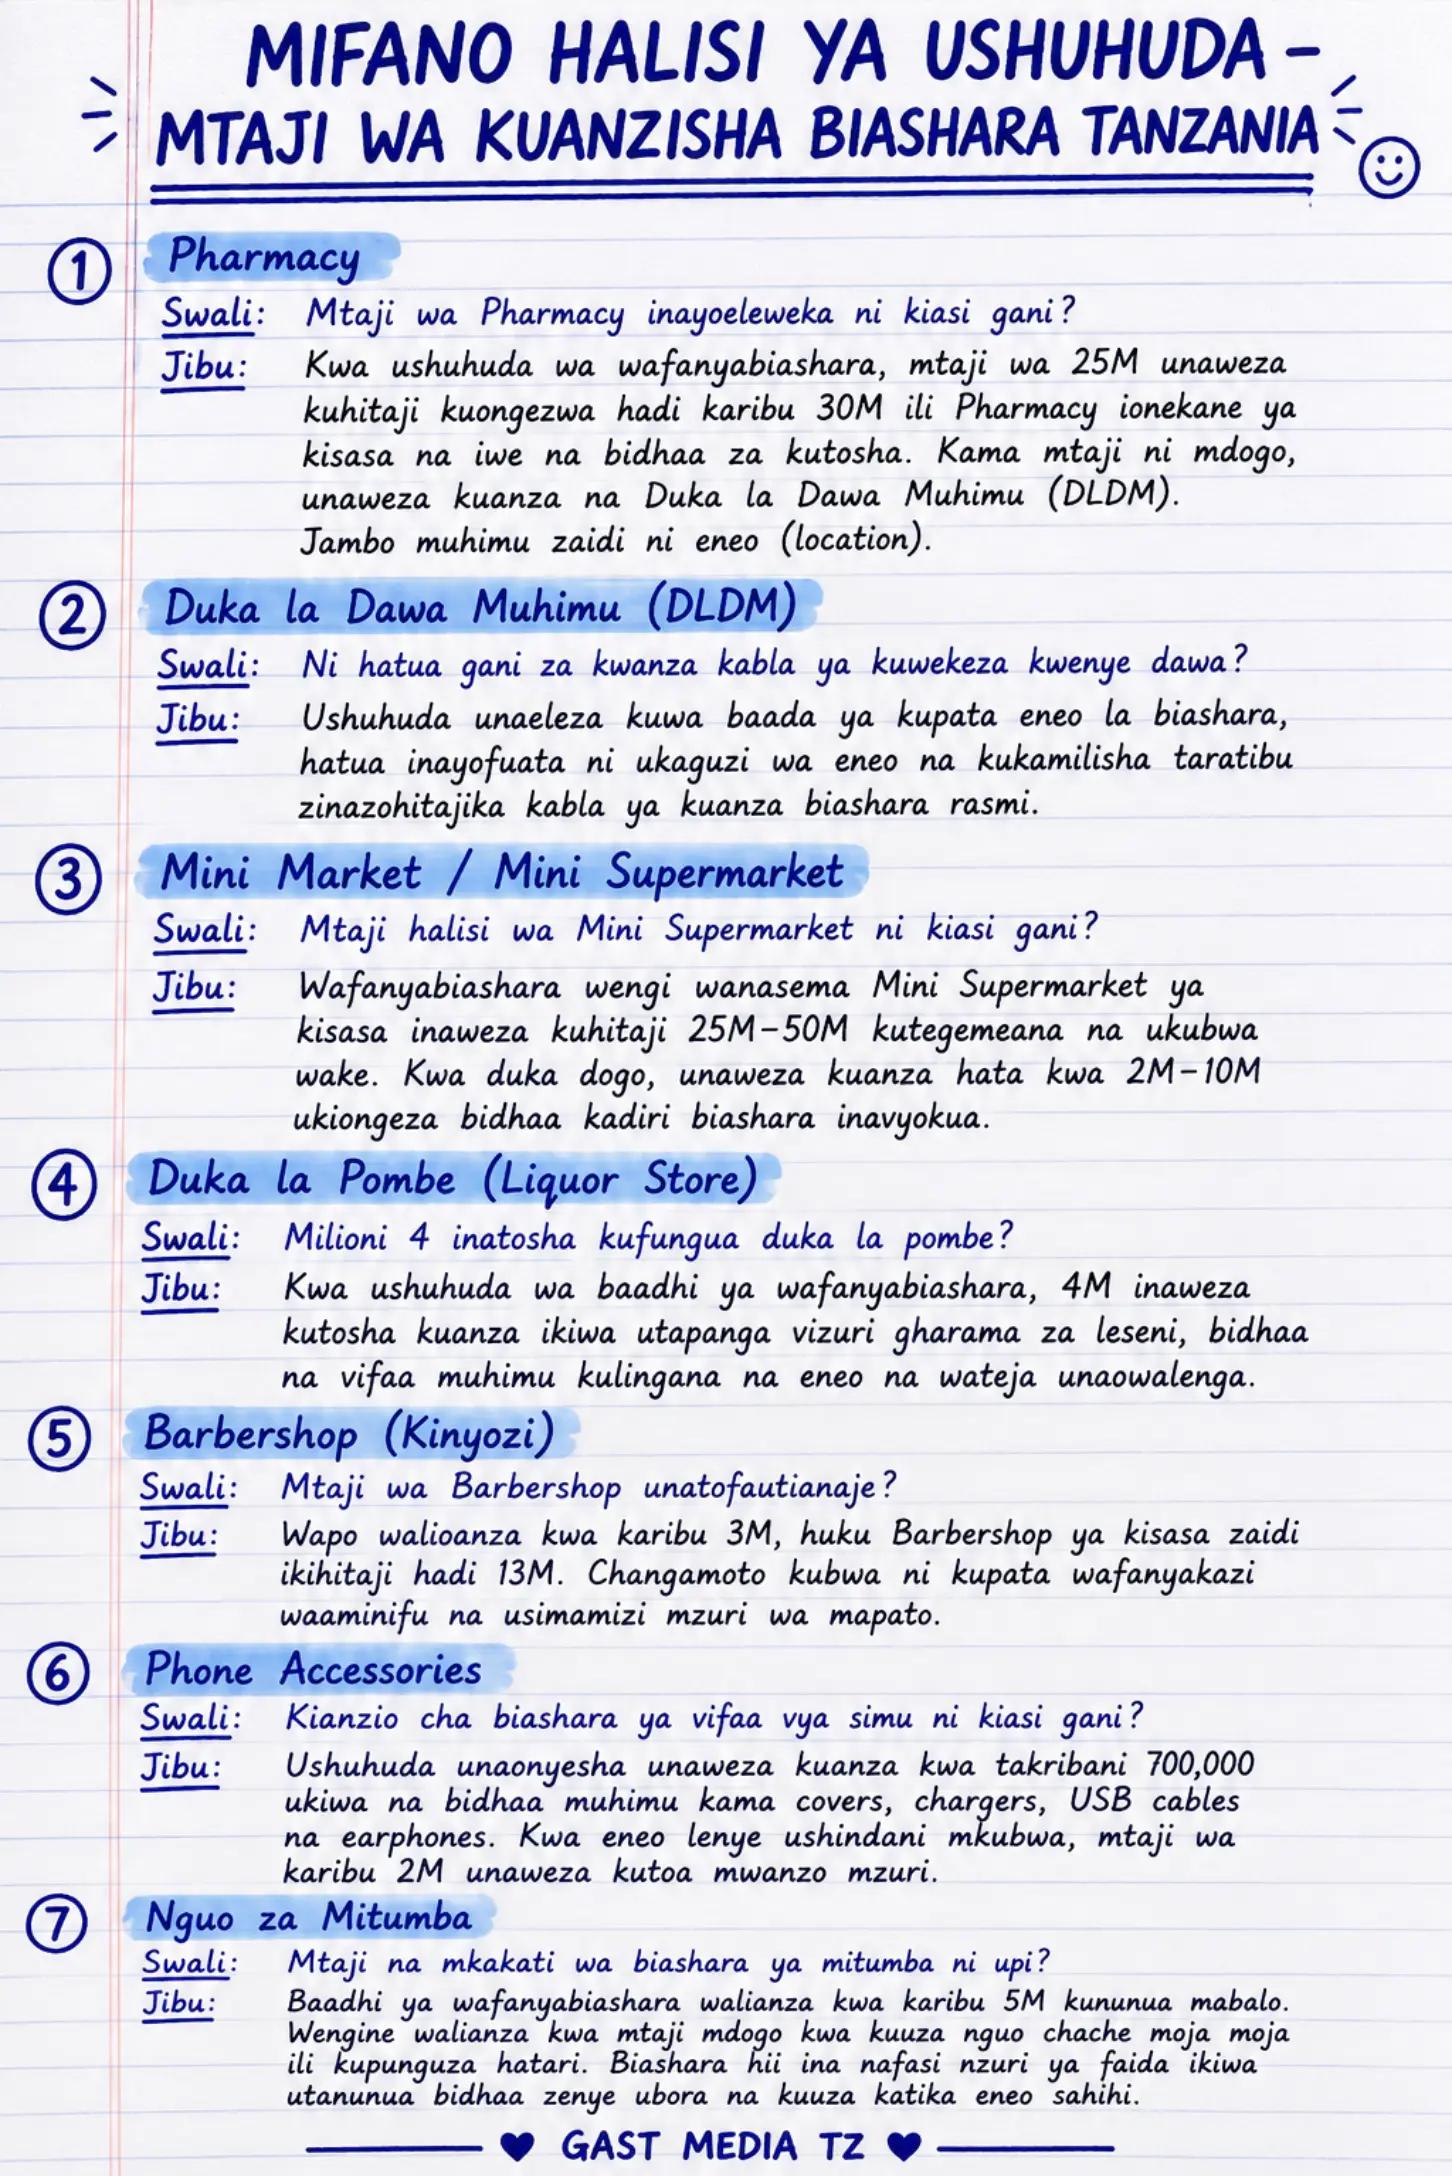 MIFANO HALISI YA USHUHUDA –
MTAJI WA KUANZISHA BIASHARA TANZANIA
1 Pharmacy
Swali: Mtaji wa Pharmacy inayoeleweka ni kiasi gani?
Jibu: Kwa ushuhuda wa wafanyabiashara, mtaji wa 25M unaweza
kuhitaji kuongezwa hadi karibu 30M ili Pharmacy ionekane ya
kisasa na iwe na bidhaa za kutosha. Kama mtaji ni mdogo,
unaweza kuanza na Duka la Dawa Muhimu (DLDM).
Jambo muhimu zaidi ni eneo (location).
2 Duka la Dawa Muhimu (DLDM)
Swali: Ni hatua gani za kwanza kabla ya kuwekeza kwenye dawa?
Jibu: Ushuhuda unaeleza kuwa baada ya kupata eneo la biashara,
hatua inayofuata ni ukaguzi wa eneo na kukamilisha taratibu
zinazohitajika kabla ya kuanza biashara rasmi.
3 Mini Market / Mini Supermarket
Swali: Mtaji halisi wa Mini Supermarket ni kiasi gani?
Jibu: Wafanyabiashara wengi wanasema Mini Supermarket ya
kisasa inaweza kuhitaji 25M–50M kutegemeana na ukubwa
wake. Kwa duka dogo, unaweza kuanza hata kwa 2M–10M
ukiongeza bidhaa kadiri biashara inavyokua.
4 Duka la Pombe (Liquor Store)
Swali: Milioni 4 inatosha kufungua duka la pombe?
Jibu: Kwa ushuhuda wa baadhi ya wafanyabiashara, 4M inaweza
kutosha kuanza ikiwa utapanga vizuri gharama za leseni, bidhaa
na vifaa muhimu kulingana na eneo na wateja unaowalenga.
5 Barbershop (Kinyozi)
Swali: Mtaji wa Barbershop unatofautianaje?
Jibu: Wapo walioanza kwa karibu 3M, huku Barbershop ya kisasa zaidi
ikihitaji hadi 13M. Changamoto kubwa ni kupata wafanyakazi
waaminifu na usimamizi mzuri wa mapato.
6 Phone Accessories
Swali: Kianzio cha biashara ya vifaa vya simu ni kiasi gani?
Jibu: Ushuhuda unaonyesha unaweza kuanza kwa takribani 700,000
ukiwa na bidhaa muhimu kama covers, chargers, USB cables
na earphones. Kwa eneo lenye ushindani mkubwa, mtaji wa
karibu 2M unaweza kutoa mwanzo mzuri.
7 Nguo za Mitumba
Swali: Mtaji na mkakati wa biashara ya mitumba ni upi?
Jibu: Baadhi ya wafanyabiashara walianza kwa karibu 5M kununua mabalo.
Wengine walianza kwa mtaji mdogo kwa kuuza nguo chache moja moja
ili kupunguza hatari. Biashara hii ina nafasi nzuri ya faida ikiwa
utanunua bidhaa zenye ubora na kuuza katika eneo sahihi.
GAST MEDIA TZ